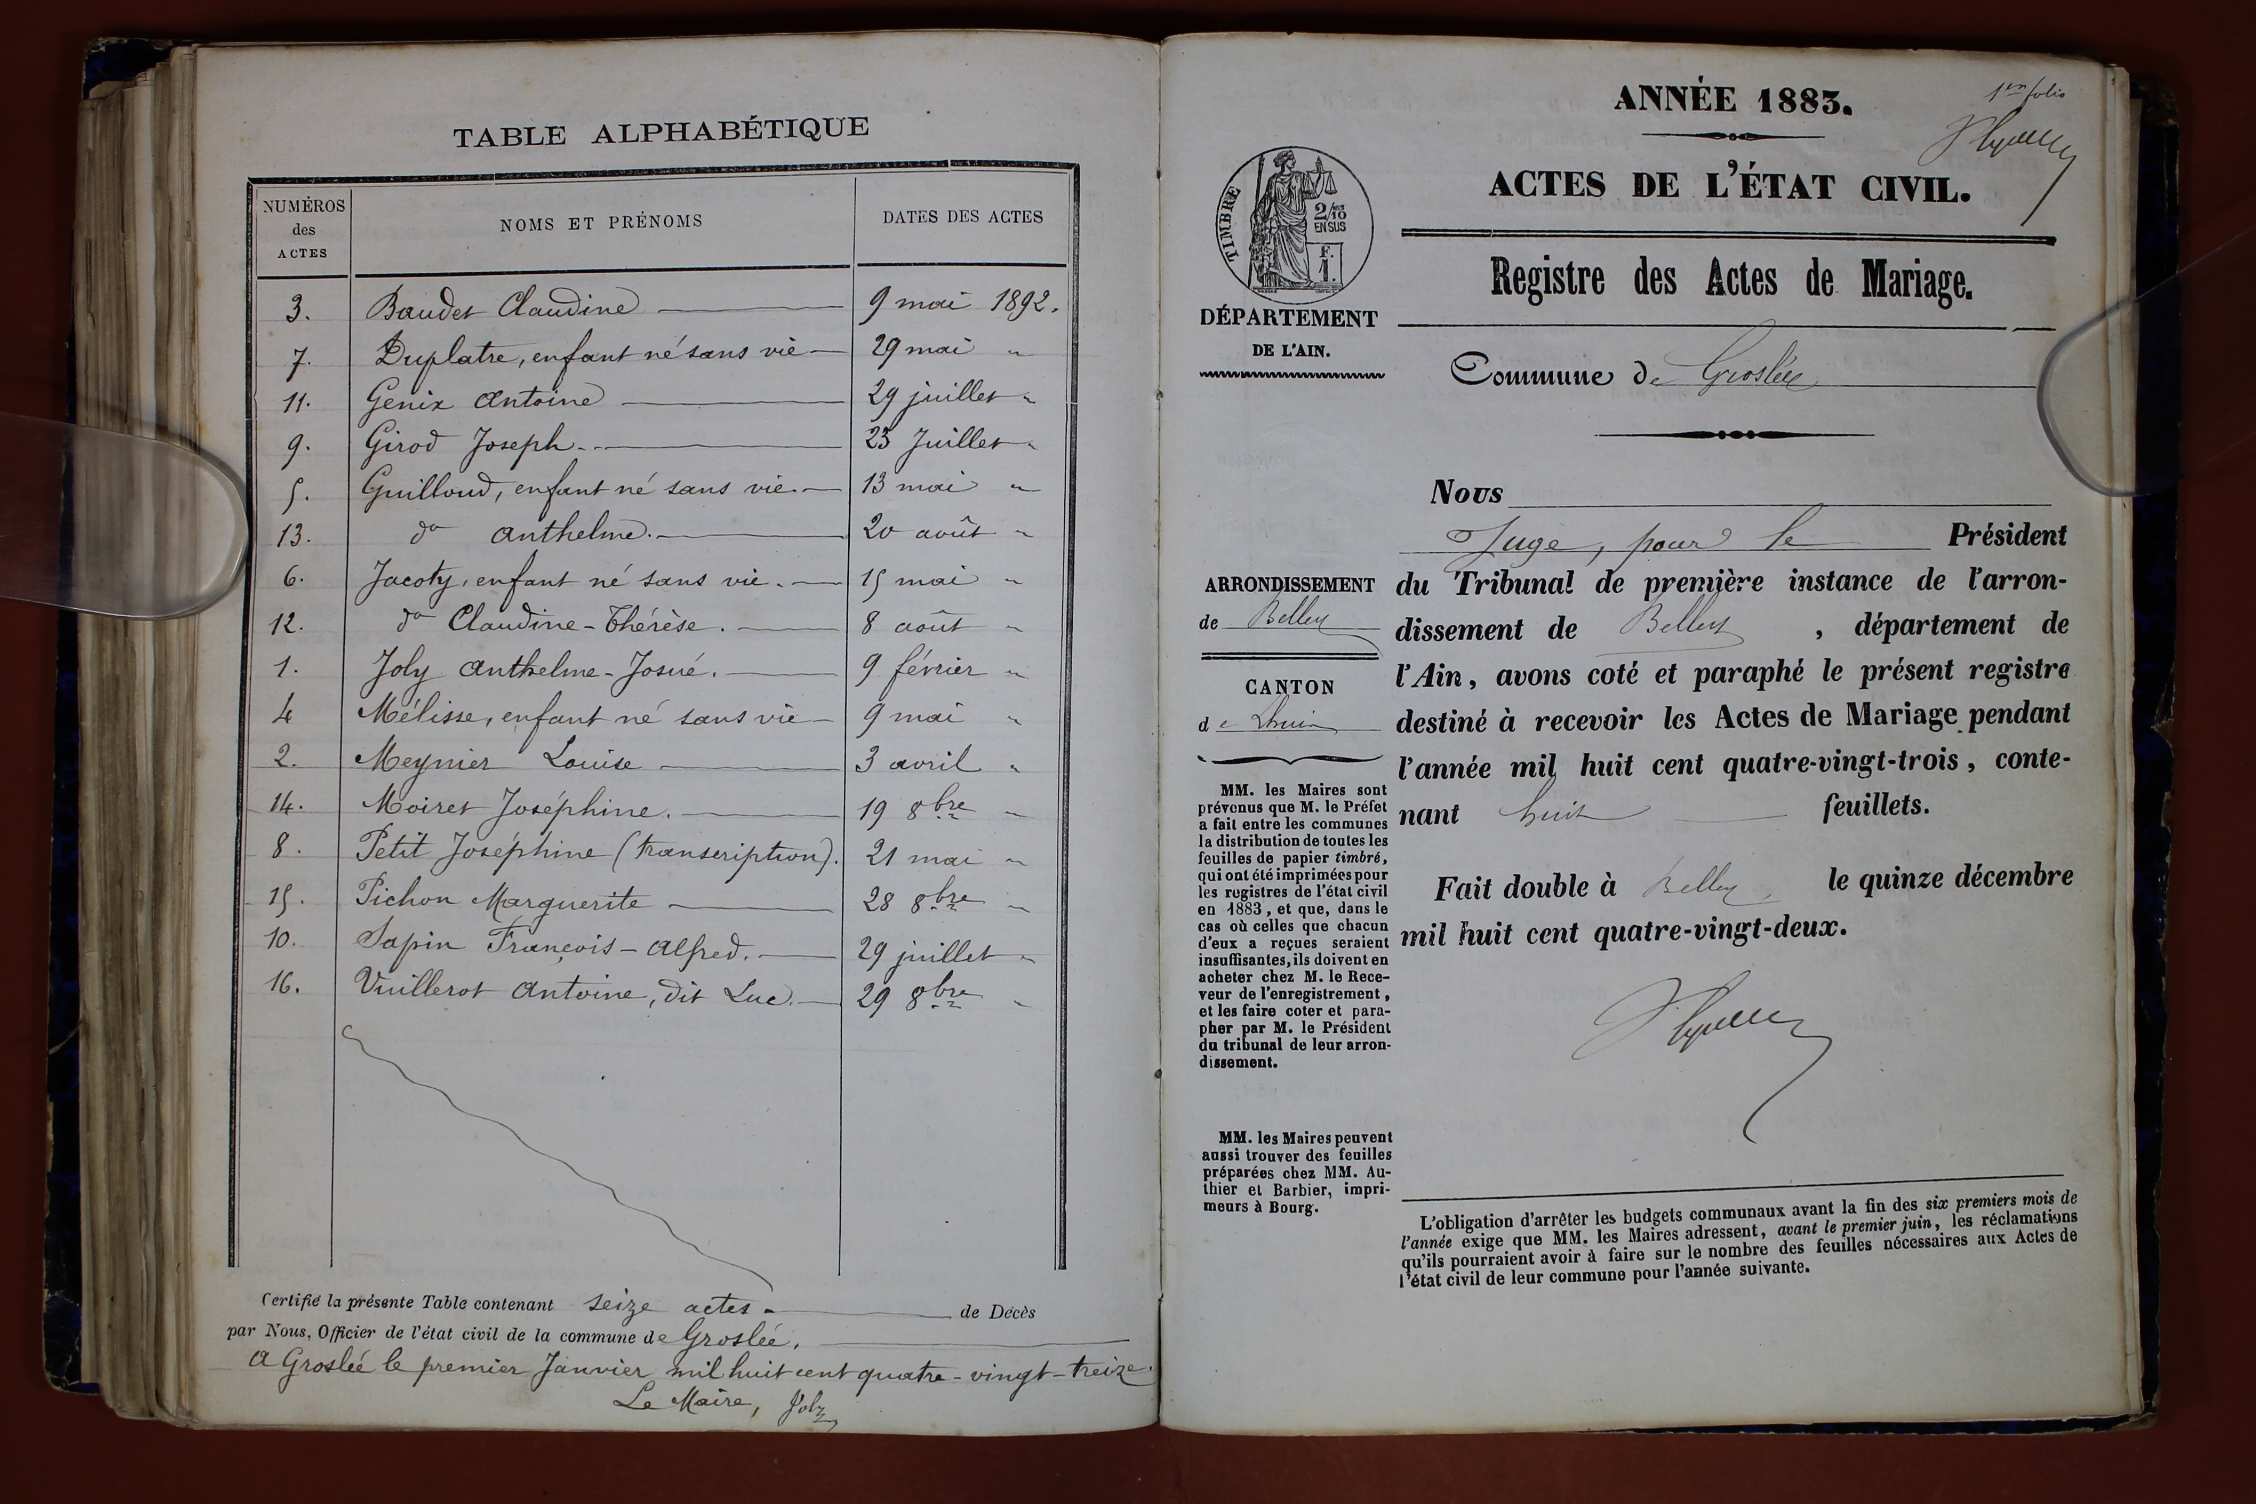 TABLE ALPHABÉTIQUE
NUMÉROS des ACTES NOMS ET PRÉNOMS DATES DES ACTES
3. Baudet Claudine 9 mai 1892.
7. Duplatre, enfant né sans vie 29 mai "
11. Genix Antoine 29 juillet "
9. Girod Joseph. 23 Juillet "
5. Guilloud, enfant né sans vie. 13 mai "
13. do Anthelme. 20 août "
6. Jacoty, enfant né sans vie. 15 mai "
12. do Claudine-Thérèse. 8 août "
1. Joly Anthelme-Josué. 9 février "
4 Mélisse, enfant né sans vie 9 mai "
2. Meynier Louise 3 avril "
14. Moiret Joséphine. 19 8bre "
8. Petit Joséphine (transcription). 21 mai "
15. Pichon Marguerite 28 8bre "
10. Sapin François-Alfred. 29 juillet "
16. Vuillerot Antoine, dit Luc. 29 8bre "
Certifié la présente Table contenant seize actes. de Décès
par Nous, Officier de l'état civil de la commune de Groslée.
A Groslée le premier Janvier mil huit cent quatre-vingt-treize.
Le Maire, Joly
1er folio
ANNÉE 1883.
ACTES DE L'ÉTAT CIVIL.
TIMBRE
2/10
EN SUS
F.
1.
Registre des Actes de Mariage.
DÉPARTEMENT
DE L'AIN.
Commune de Groslée
Nous
Juge, pour le Président
du Tribunal de première instance de l'arron-
dissement de Belley, département de
l'Ain, avons coté et paraphé le présent registre
destiné à recevoir les Actes de Mariage pendant
l'année mil huit cent quatre-vingt-trois, conte-
nant huit feuillets.
Fait double à Belley, le quinze décembre
mil huit cent quatre-vingt-deux.
ARRONDISSEMENT
de Belley
CANTON
de Lhuis
MM. les Maires sont
prévenus que M. le Préfet
a fait entre les communes
la distribution de toutes les
feuilles de papier timbré,
qui ont été imprimées pour
les registres de l'état civil
en 1883, et que, dans le
cas où celles que chacun
d'eux a reçues seraient
insuffisantes, ils doivent en
acheter chez M. le Rece-
veur de l'enregistrement,
et les faire coter et para-
pher par M. le Président
du tribunal de leur arron-
dissement.
MM. les Maires peuvent
aussi trouver des feuilles
préparées chez MM. Au-
thier et Barbier, impri-
meurs à Bourg.
L'obligation d'arrêter les budgets communaux avant la fin des six premiers mois de
l'année exige que MM. les Maires adressent, avant le premier juin, les réclamations
qu'ils pourraient avoir à faire sur le nombre des feuilles nécessaires aux Actes de
l'état civil de leur commune pour l'année suivante.